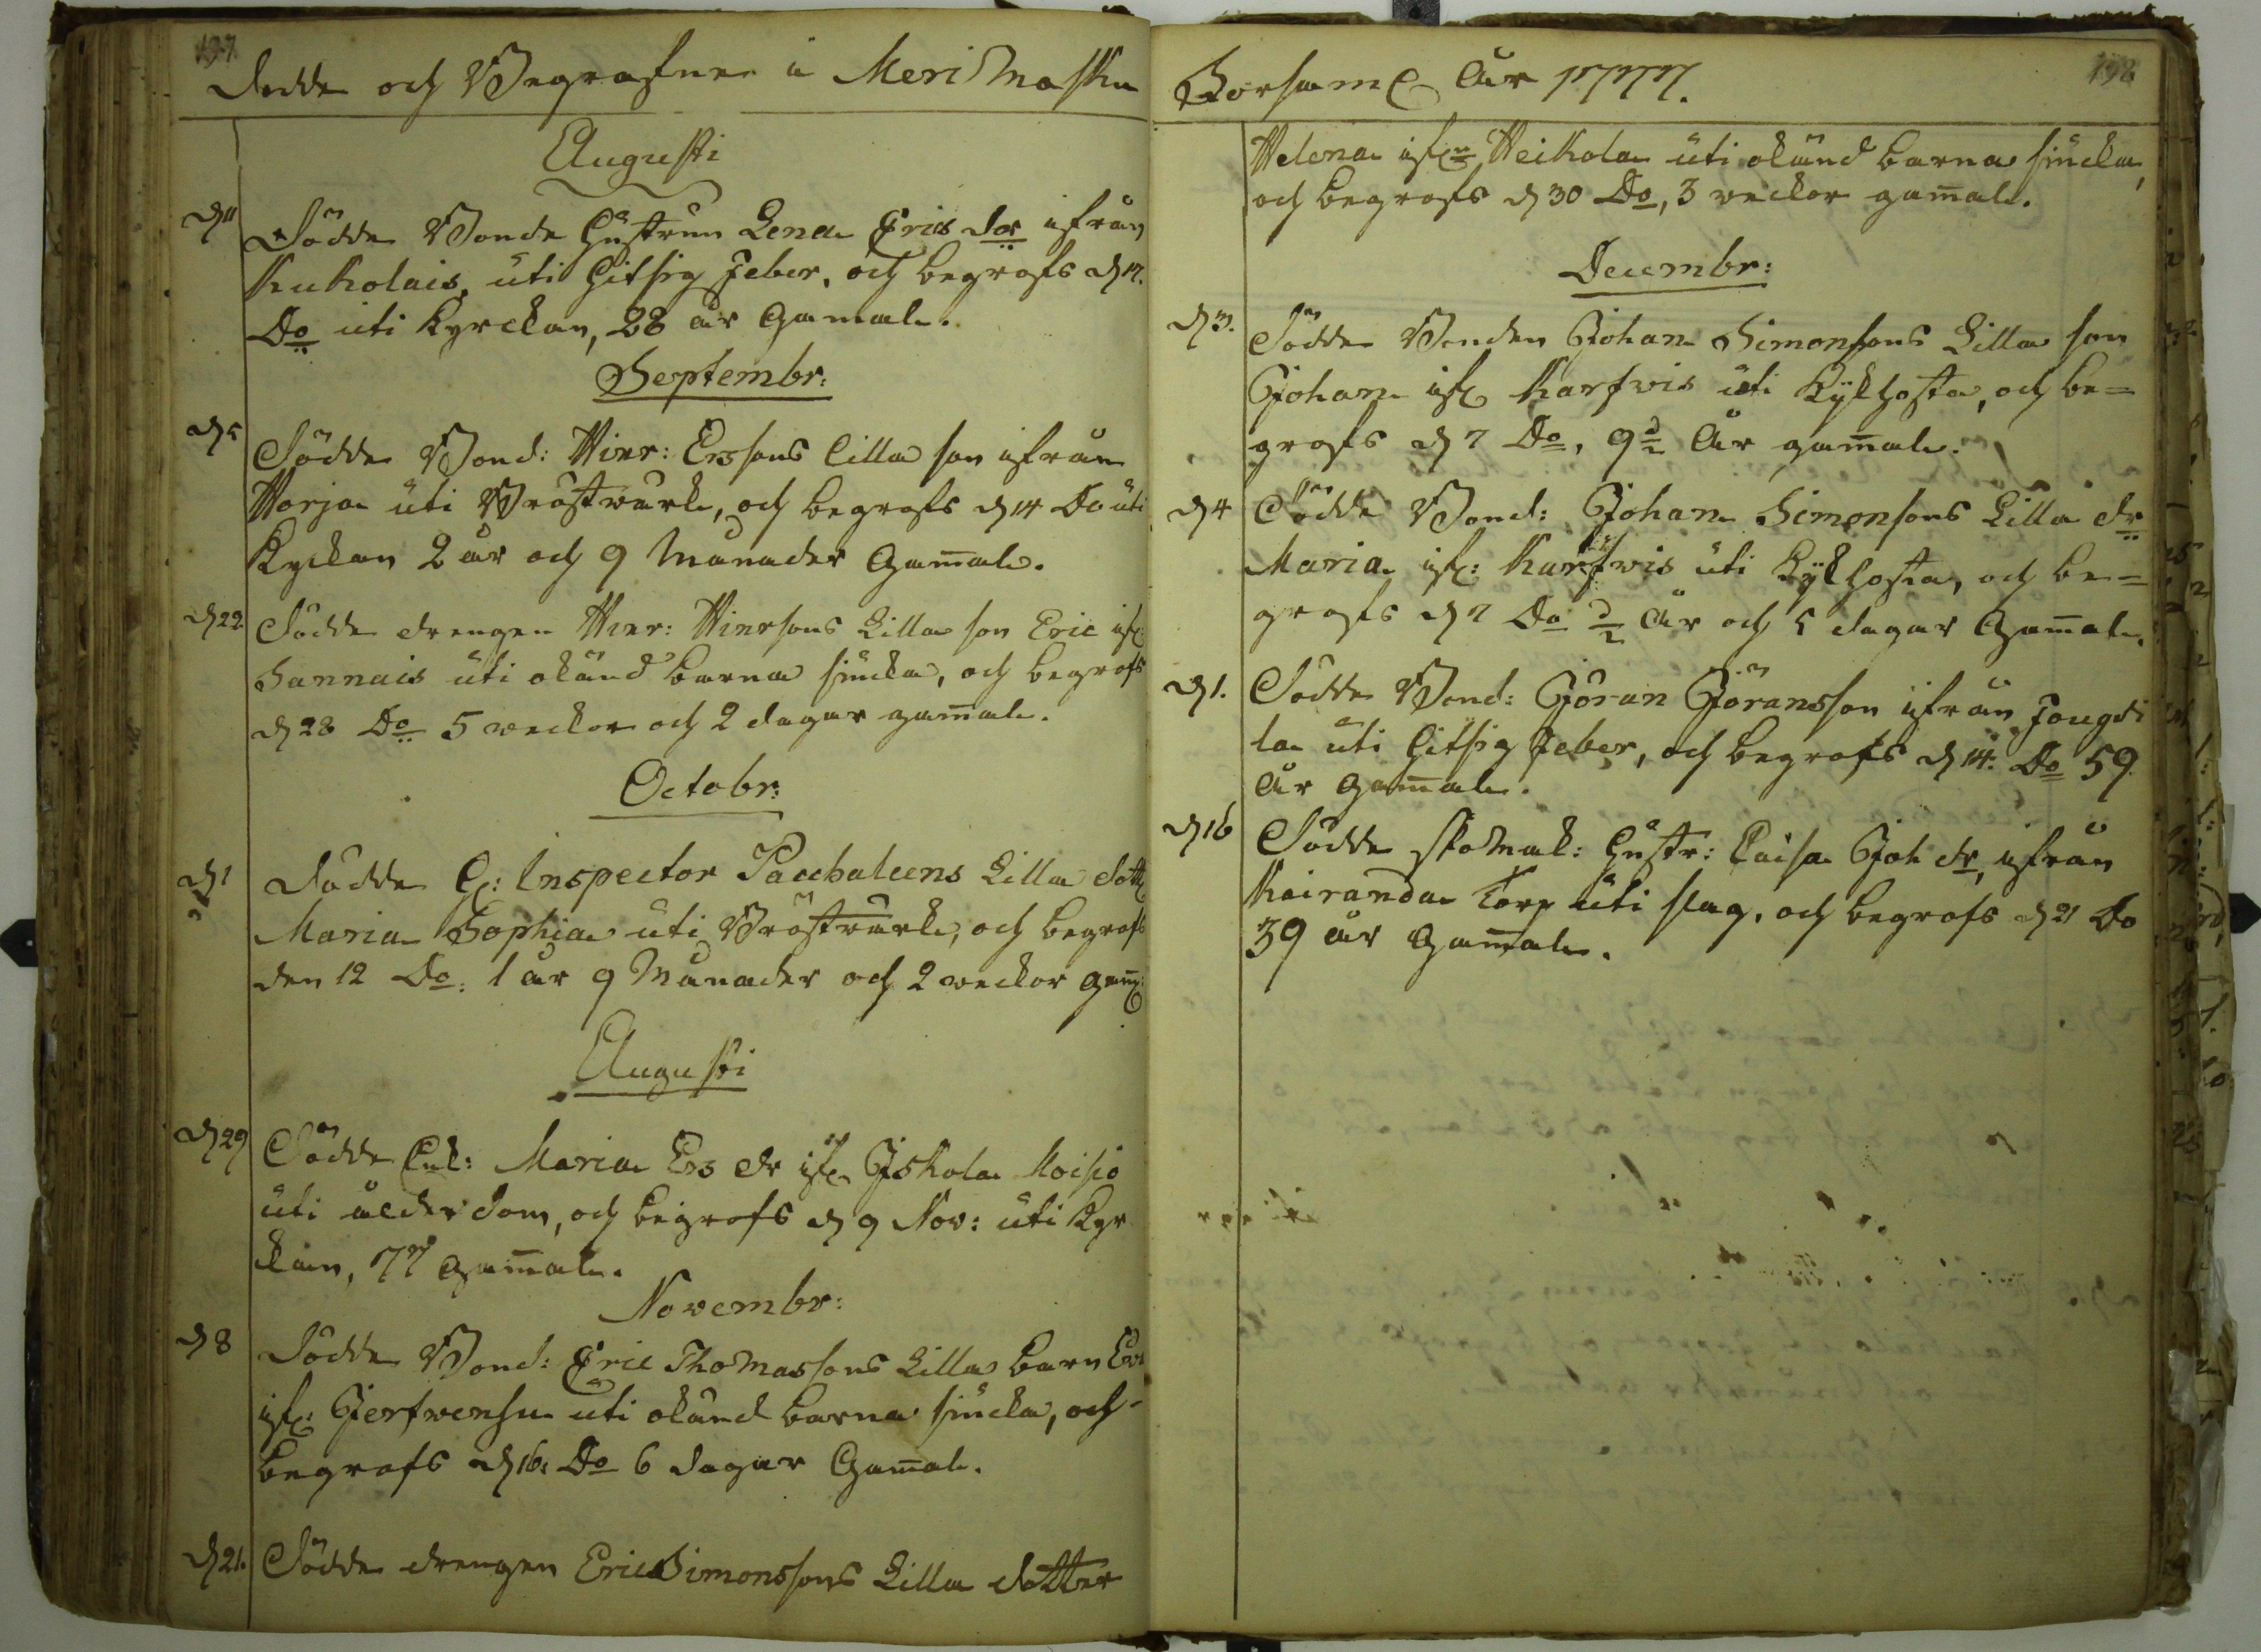 197.
Dödde och Begrafne i Meri Masku
Augusti
d 11 Dödde Bonde Hustrun Lena Erics dor ifrån
Kukolais, uti hitsig feber, och begrofs d 17.
Do uti Kyrckan, 28 år Gamal.
Septembr:
d 5 Dödde Bond: Hinr: Ersons lilla son ifrån
Worja uti Bröstwärk, och begrofs d 14 Do uti
Kyckan 2 år och 9 Månader Gamal.
d 22 Dödde drengen Hinr: Hinrsons Lilla son Eric ifr:
Sannais uti okänd barna siucka, och begrofs
d 28 Do 5 weckor och 2 dagar gamal.
Octobr:
d 1 Dödde H: Inspector Pacchaleens Lilla dott
Maria Sophia uti Bröstwärk, och begrofs
den 12 Do: 1 år 9 Månader och 2 weckor gam:
Augusti
d 29 Dödde Enk: Maria Ers dr ifr Iskola Moisio
uti ålderdom, och begrofs d 9 Nov: uti Kyr
ckan, 77 Gamal.
Novembr:
d 8 Dödde Bond: Eric Thomassons Lilla barn
ifr: Jerfwensu uti okänd barna siucka, och
begrofs d 16: Do 6 dagar Gamal.
d 21. Dödde drengen Eric Simonssons Lilla dotter
198
Borsaml År 1777.
Helena ifrn Heikola uti okänd barna siucka,
och begrofs d 30 Do, 3 weckor gamal.
Decembr:
d 3. Dödde Bonden Johan Simonsons Lilla son
Johan ifr Karfvis uti Kykhosta, och be=
grofs d 7 Do, 9 1/2 År gamal.
d 4 Dödde Bond: Johan Simonsons Lilla dr
Maria ifr: Karfwis uti Kykhosta, och be=
grofs d 7 Do 1/2 År och 5 dagar Gamal.
d 1. Dödde Bond: Jöran Jöransson ifrån Jougdi
la uti hitsig feber, och begrofs d 14: Do 59
År gamal.
d 16 Dödde skomak: Hustr: Caisa Joh dr, ifrån
Kairanda Torp uti slag, och begrofs d 21 Do
39 år Gamal.